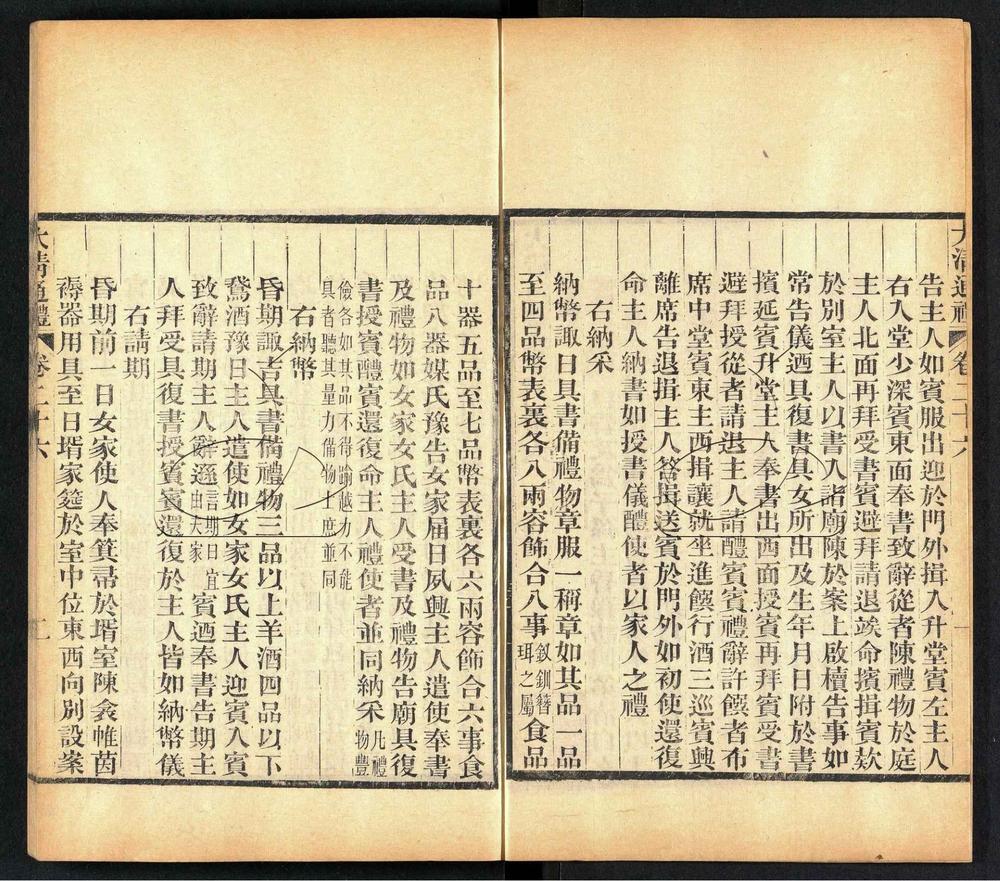 大清通禮 卷二十六
告主人如賓服出迎於門外揖入升堂賓左主人
右入堂少深賓東面奉書致辭從者陳禮物於庭
主人北面再拜受書賓避拜請退竢命擯揖賓欵
於別室主人以書入諸廟陳於案上啟櫝告事如
常告儀迺具復書具女所出及生年月日附於書
擯延賓升堂主人奉書出西面授賓再拜賓受書
避拜授從者請退主人請醴賓賓禮辭許饌者布
席中堂賓東主西揖讓就坐進饌行酒三巡賓興
離席告退揖主人荅揖送賓於門外如初使還復
命主人納書如授書儀醴使者以家人之禮
右納采
納幣諏日具書備禮物章服一稱章如其品一品
至四品幣表裏各八兩容飾合八事釵釧簪珥之屬食品
十器五品至七品幣表裏各六兩容飾合六事食
品八器媒氏豫告女家屆日夙興主人遣使奉書
及禮物如女家女氏主人受書及禮物告廟具復
書授賓醴賓還復命主人禮使者並同納采凡禮物豐
儉各如其品不得踰越力不能具者聽其量力備物士庶並同
右納幣
昏期諏吉具書備禮物三品以上羊酒四品以下
鵞酒豫日主人遣使如女家女氏主人迎賓入賓
致辭請期主人辭遜言期日宜由夫家賓迺奉書告期主
人拜受具復書授賓賓還復於主人皆如納幣儀
右請期
昏期前一日女家使人奉箕帚於壻室陳衾帷茵
褥器用具至日壻家筵於室中位東西向別設案
大清通禮 卷二十六